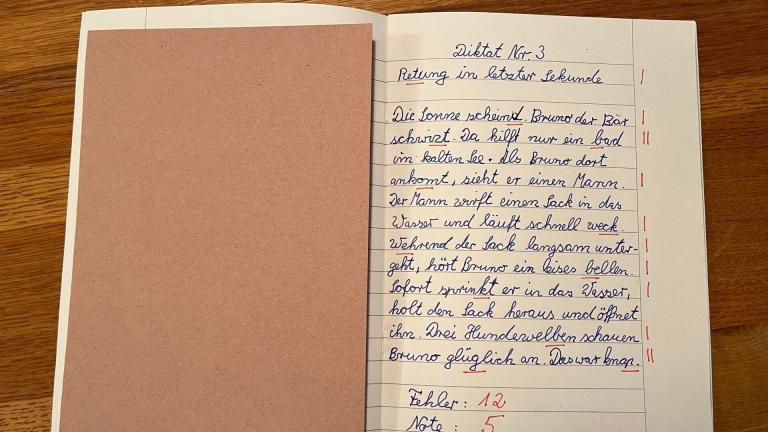 Diktat Nr. 3
Retung in letzter Sekunde
Die Sonne scheind. Bruno der Bär
schwizt. Da hilft nur ein bad
im kalten See. Als Bruno dort
ankomt, sieht er einen Mann.
Der Mann wirft einen Sack in das
Wasser und läuft schnell weck.
Wehrend der Sack langsam unter-
geht, hört Bruno ein leises bellen.
Sofort sprinkt er in das Wasser,
holt den Sack heraus und öffnet
ihn. Drei Hundewelben schauen
Bruno glüglich an. Das war knap.
Fehler: 12
Note: 5